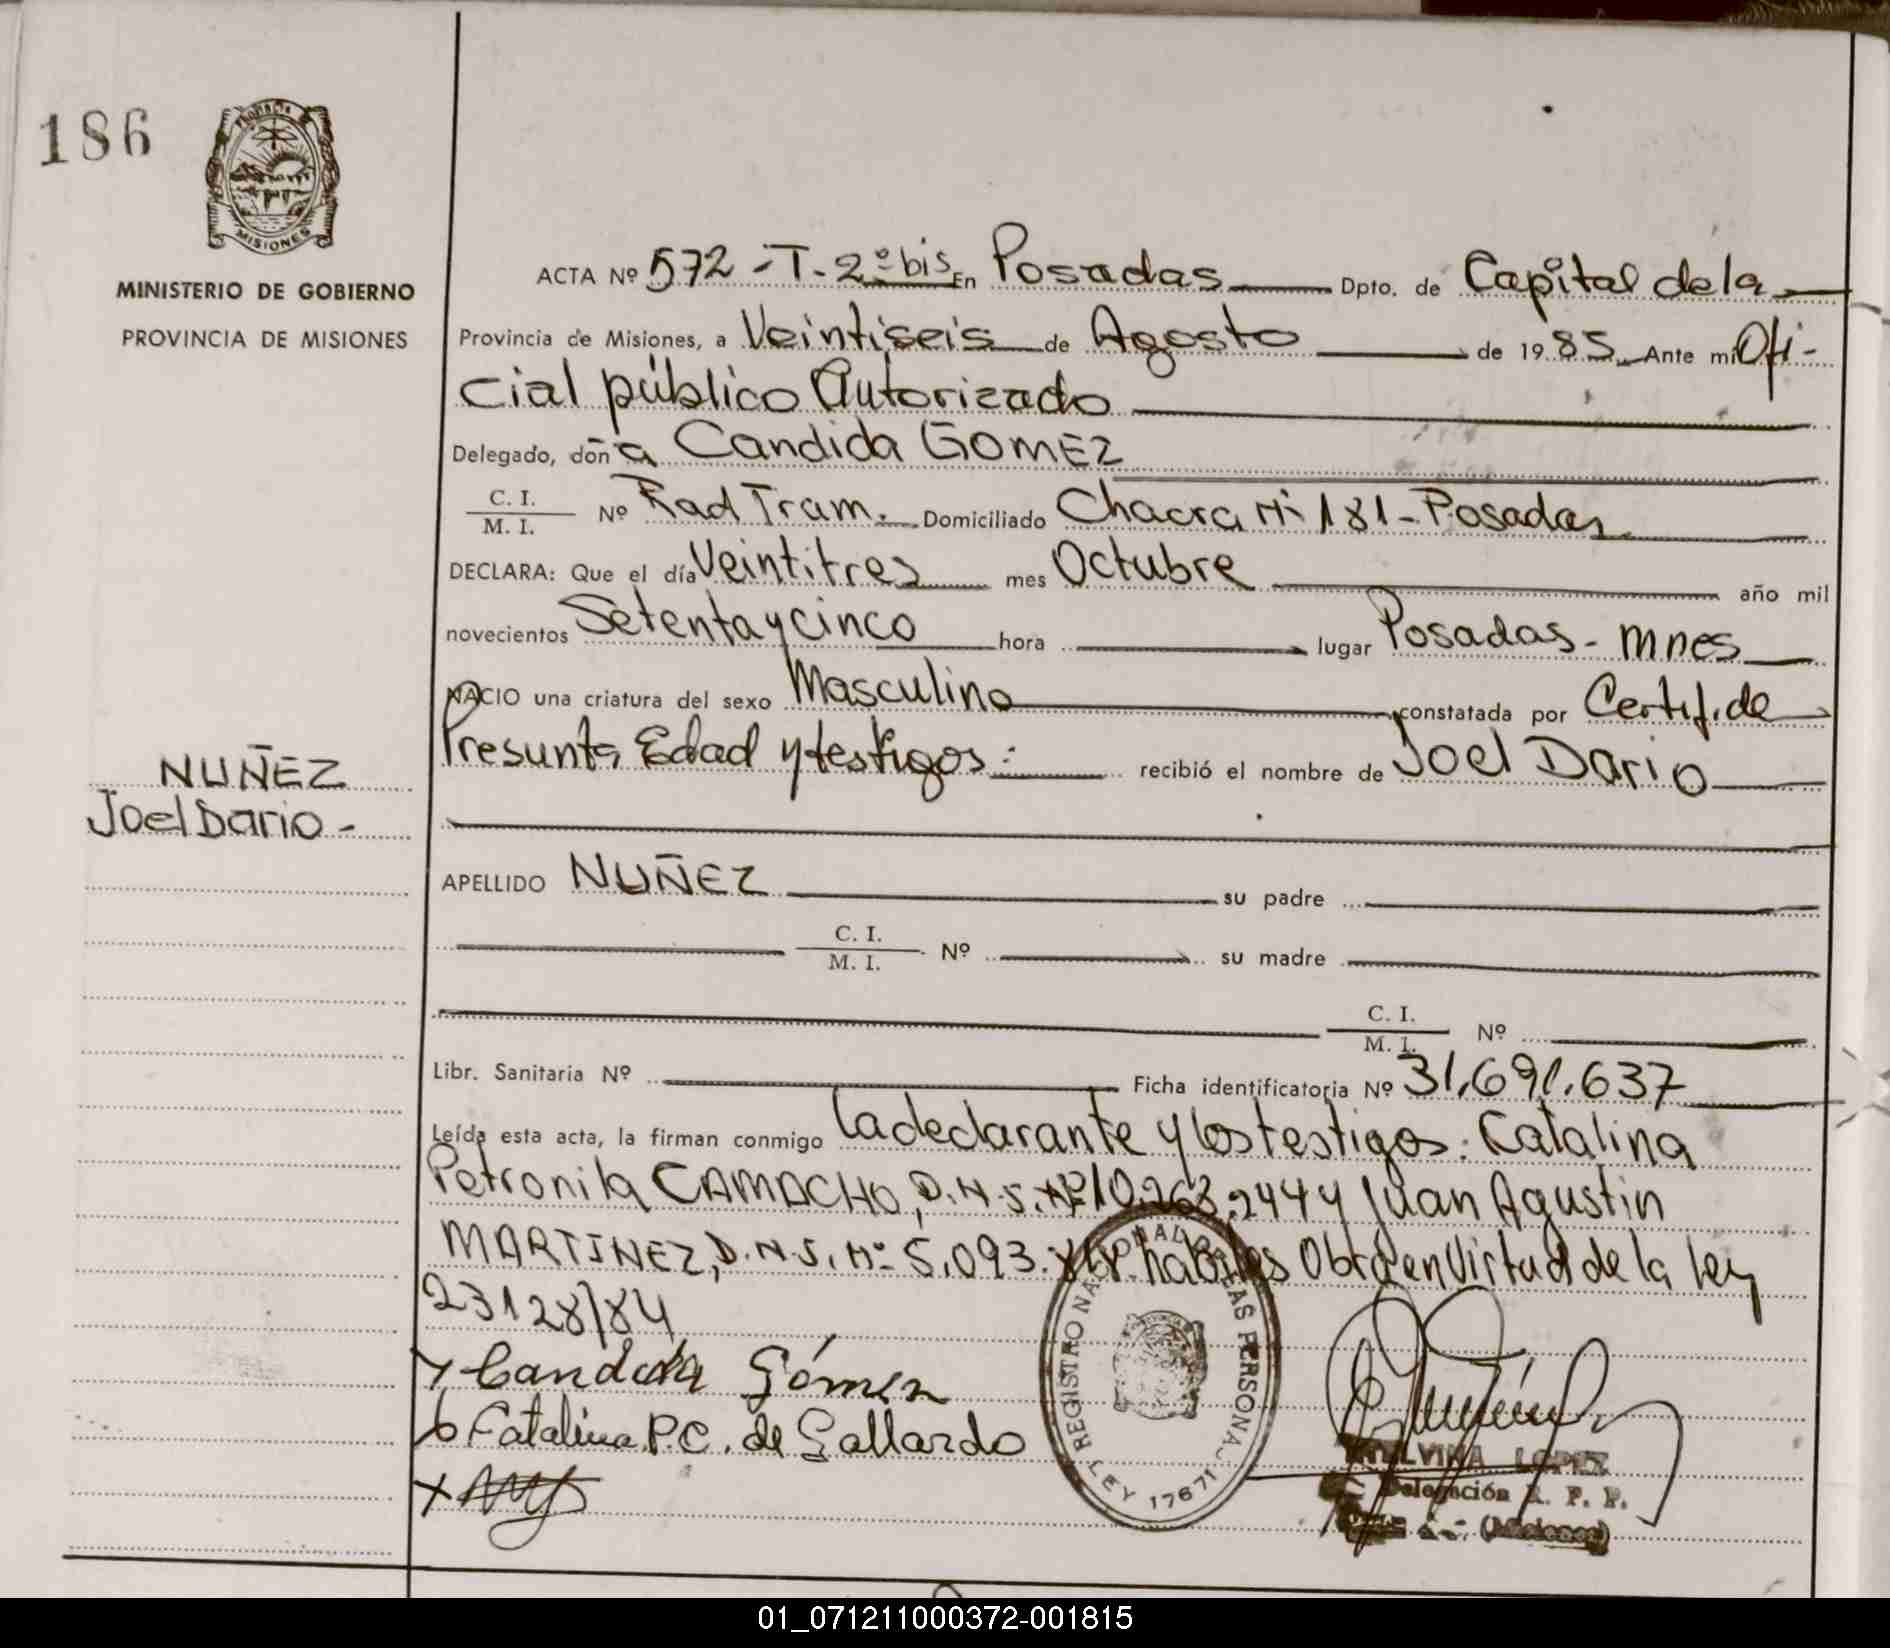 186
Provincia
MISIONES
MINISTERIO DE GOBIERNO
PROVINCIA DE MISIONES
NUÑEZ
Joel Dario -
ACTA Nº 572 - T - 2º bis En Posadas Dpto. de Capital de la
Provincia de Misiones, a Veintiseis de Agosto de 1985 Ante mi Ofi-
cial público Autorizado
Delegado, doña Candida GOMEZ
C. I. / M. I. Nº Rad Tram. Domiciliado Chacra Nº 181 - Posadas
DECLARA: Que el día Veintitres mes Octubre año mil
novecientos Setenta y cinco hora lugar Posadas - Mnes
NACIO una criatura del sexo Masculino constatada por Certif. de
Presunta Edad y testigos: recibió el nombre de Joel Dario
APELLIDO NUÑEZ su padre
C. I. / M. I. Nº su madre
C. I. / M. I. Nº
Libr. Sanitaria Nº Ficha identificatoria Nº 31.691.637
Leída esta acta, la firman conmigo la declarante y los testigos: Catalina
Petronila CAMACHO, D.N.I. Nº 10.263.244 y Juan Agustin
MARTINEZ, D.N.I. Nº 5.093. habiles Obra en Virtud de la Ley
23128/84
Candida Gómez
Catalina P.C. de Gallardo
REGISTRO NACIONAL DE LAS PERSONAS
LEY 17671
LOPEZ
Delegación R. P. P.
(Misiones)
01_071211000372-001815